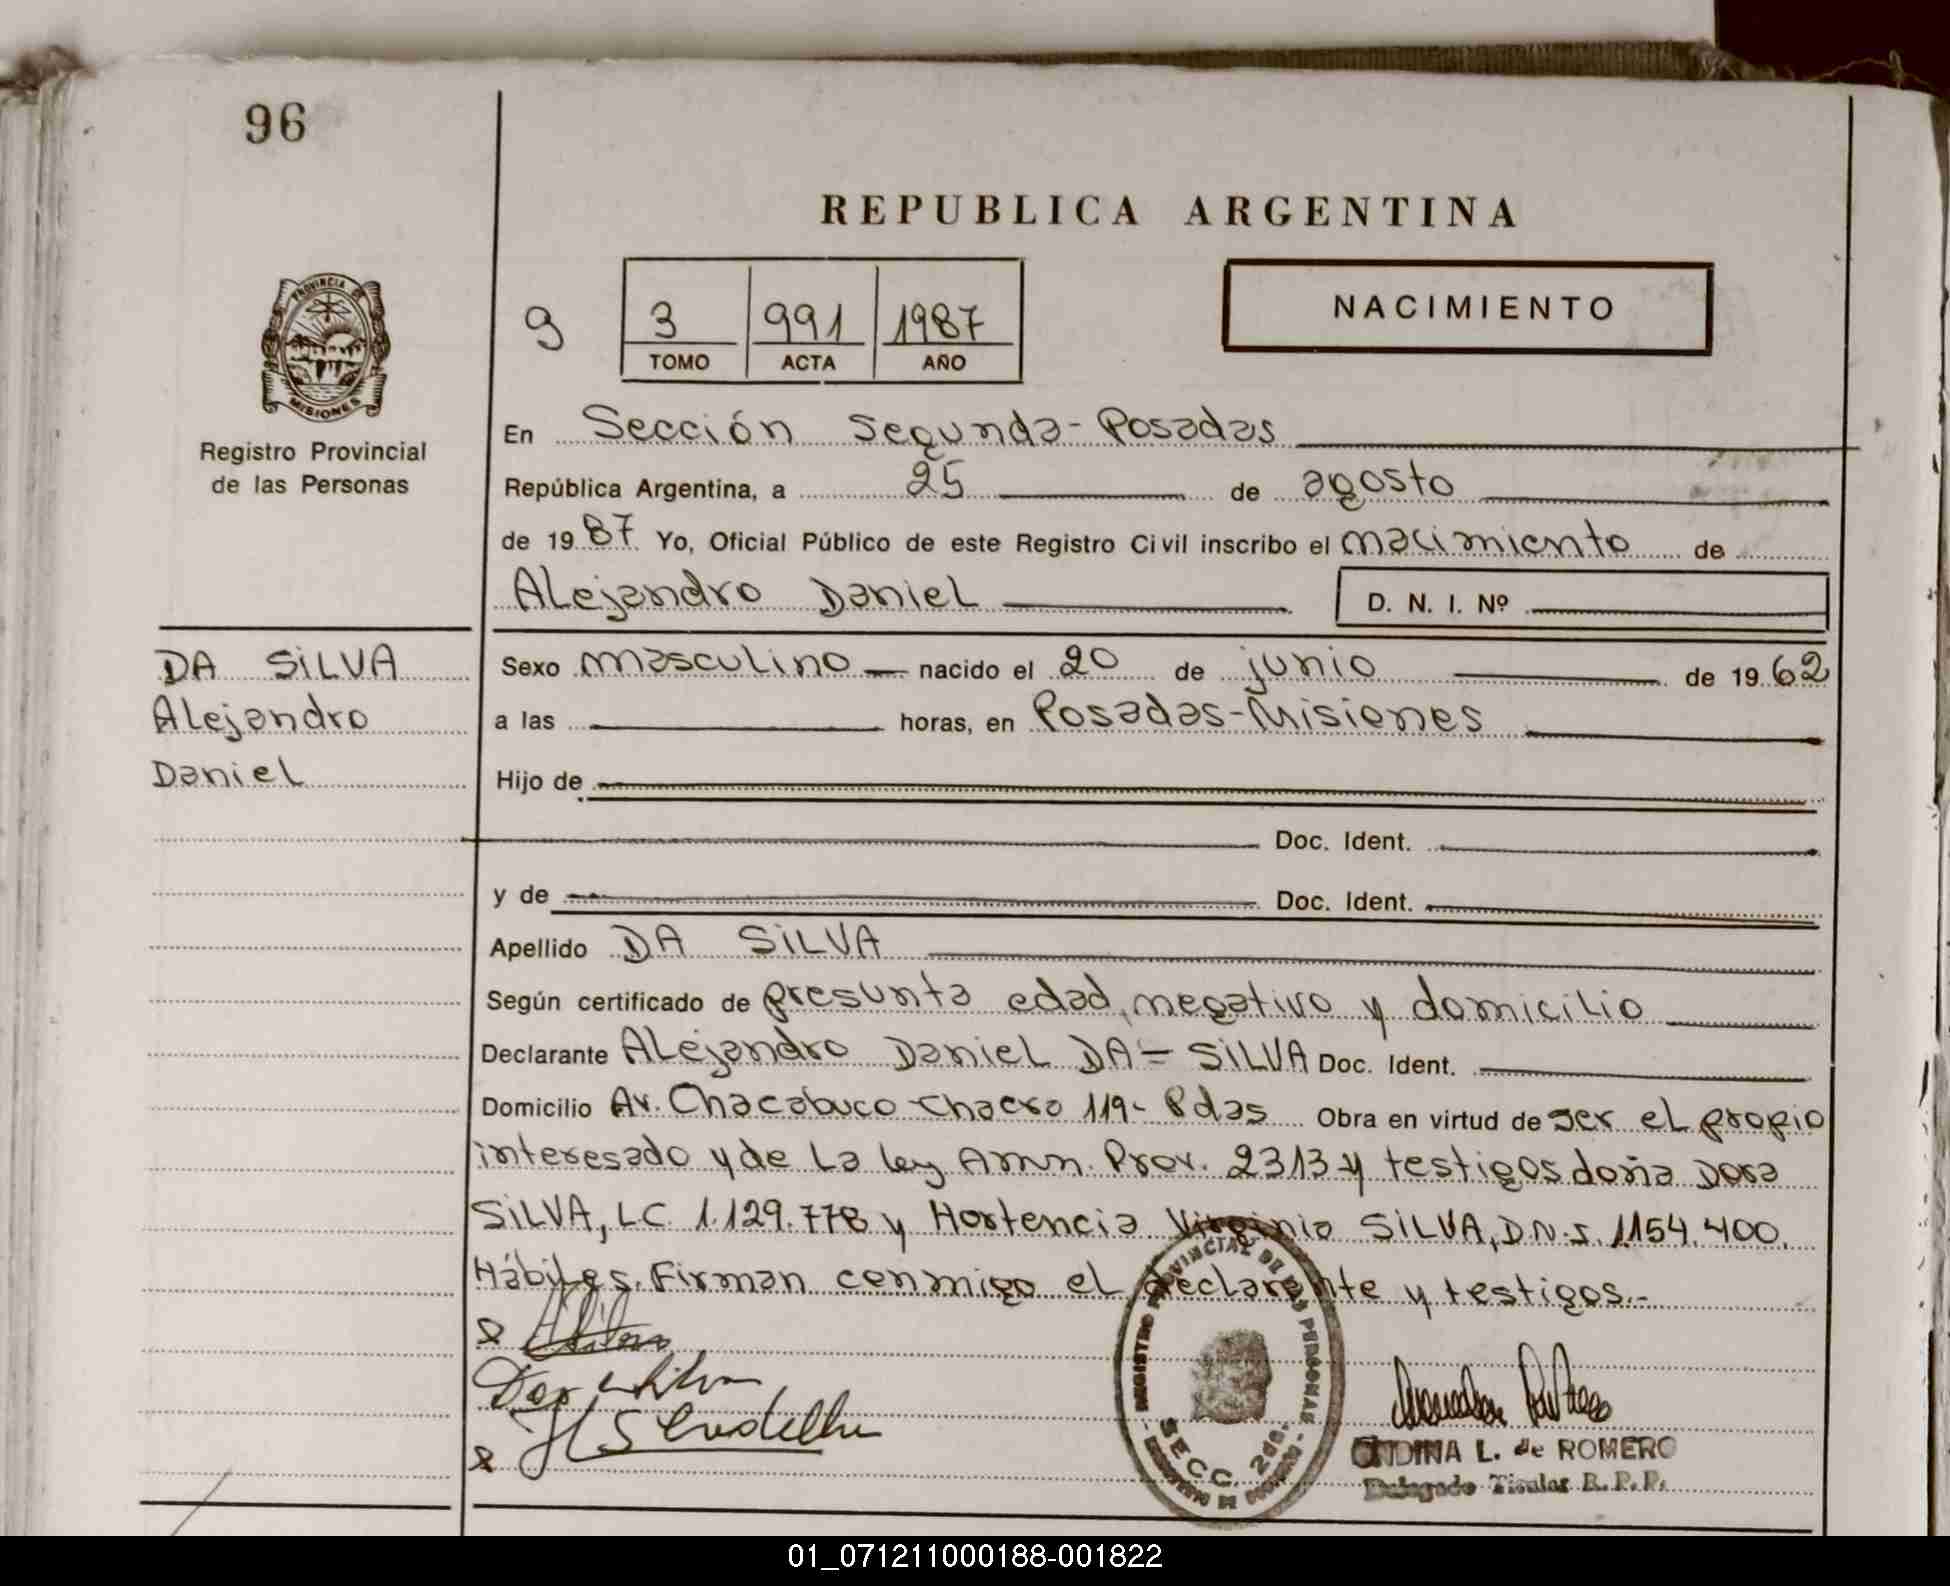 96
REPUBLICA ARGENTINA
PROVINCIA DE
MISIONES
Registro Provincial
de las Personas
9 3 991 1987
TOMO ACTA AÑO
NACIMIENTO
En Sección Segunda - Posadas
República Argentina, a 25 de agosto
de 19 87 Yo, Oficial Público de este Registro Civil inscribo el nacimiento de
Alejandro Daniel D. N. I. Nº
DA SILVA
Alejandro
Daniel
Sexo masculino nacido el 20 de junio de 19 62
a las horas, en Posadas - Misiones
Hijo de
Doc. Ident.
y de Doc. Ident.
Apellido DA SILVA
Según certificado de presunta edad, negativo y domicilio
Declarante Alejandro Daniel DA = SILVA Doc. Ident.
Domicilio Av. Chacabuco - Chacra 119 - Pdas Obra en virtud de ser el propio
interesado y de la ley Amn. Prov. 2313 y testigos doña Dora
SILVA, LC 1.129.778 y Hortencia Virginia SILVA, D.N.I. 1.154.400.
Hábiles. Firman conmigo el declarante y testigos.-
REGISTRO PROVINCIAL DE LAS PERSONAS
SECC. 2da.
ONDINA L. de ROMERO
Delegado Titular R.P.P.
01_071211000188-001822